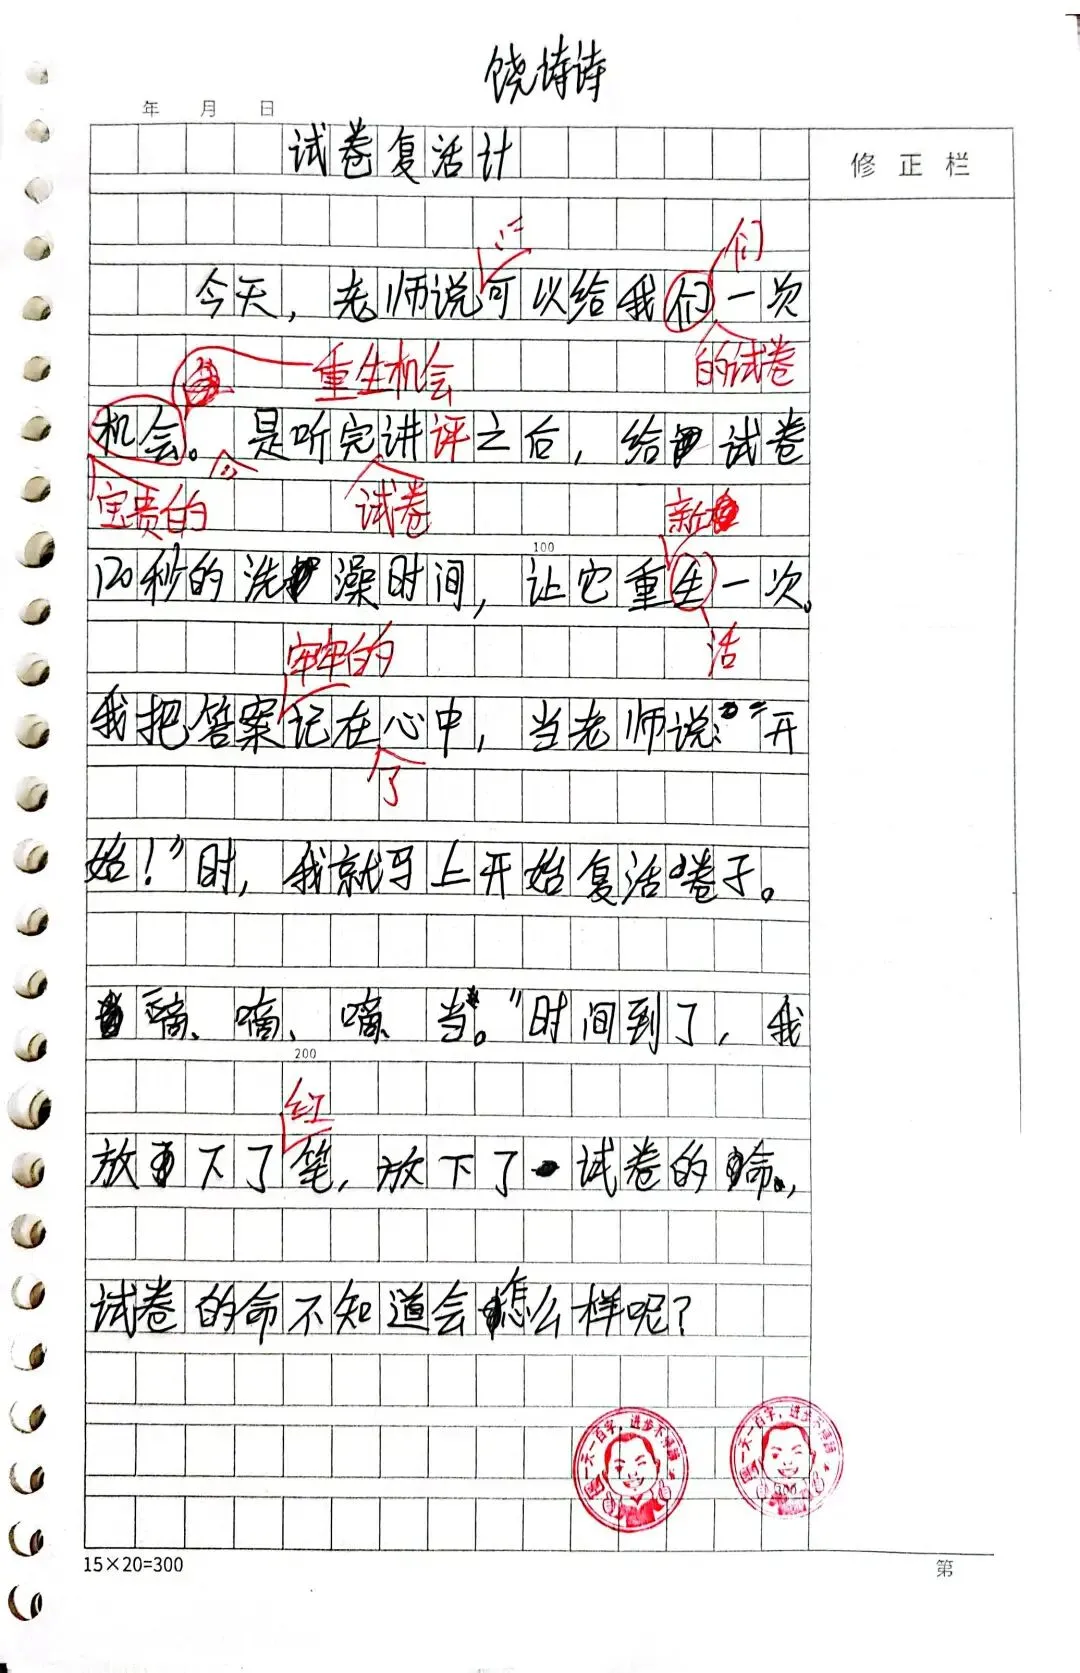 饶诗诗
年 月 日
试卷复活计
修正栏
们
今天，老师说可以给我们一次
重生机会
的试卷
机会。是听完讲评之后，给试卷
宝贵的
试卷
新
100
120秒的洗澡时间，让它重生一次。
牢牢的
活
我把答案记在心中，当老师说：“开
了
始！”时，我就马上开始复活卷子。
“嘀、嘀、嘀、当。”时间到了，我
200
红
放下了笔，放下了试卷的命，
试卷的命不知道会怎么样呢？
一天一百字，进步不得了
一天一百字，进步不得了
300
15×20=300
第